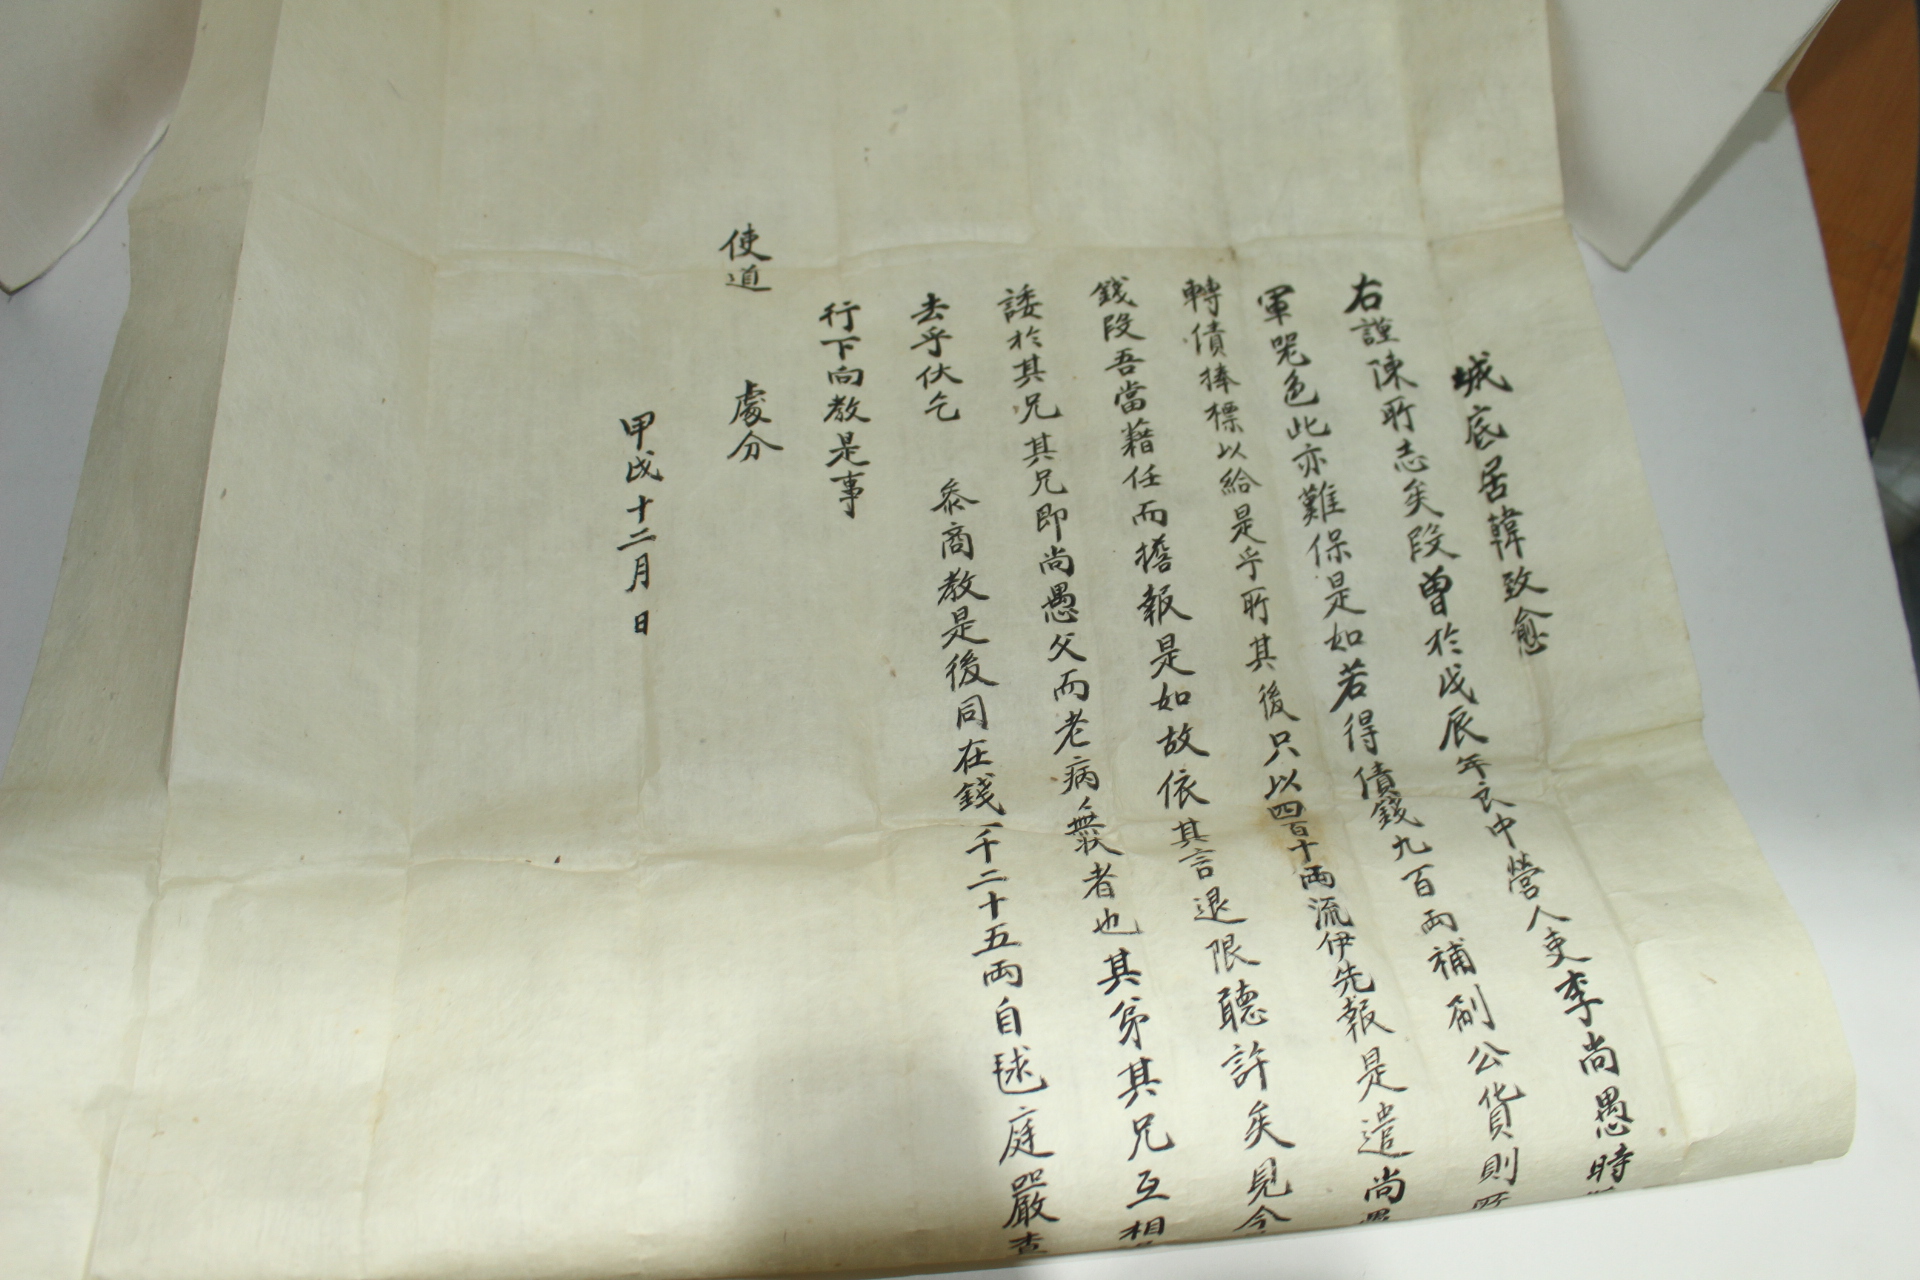 城底居韓致愈
右謹陳所志矣段曾於戊辰年良中營人吏李尚愚時
軍器色此亦難保是如若得債錢九百兩補劀公貨則所
轉債捧標以給是乎所其後只以四百十兩流伊先報是遣尚愚
錢段吾當藉任而擔報是如故依其言退限聽許矣見今
諉於其兄其兄即尚愚父而老病無狀者也其弟其兄互相
去乎伏乞 叅商教是後同在錢一千二十五兩自毬庭嚴査
行下向教是事
使道 處分
甲戌十二月 日